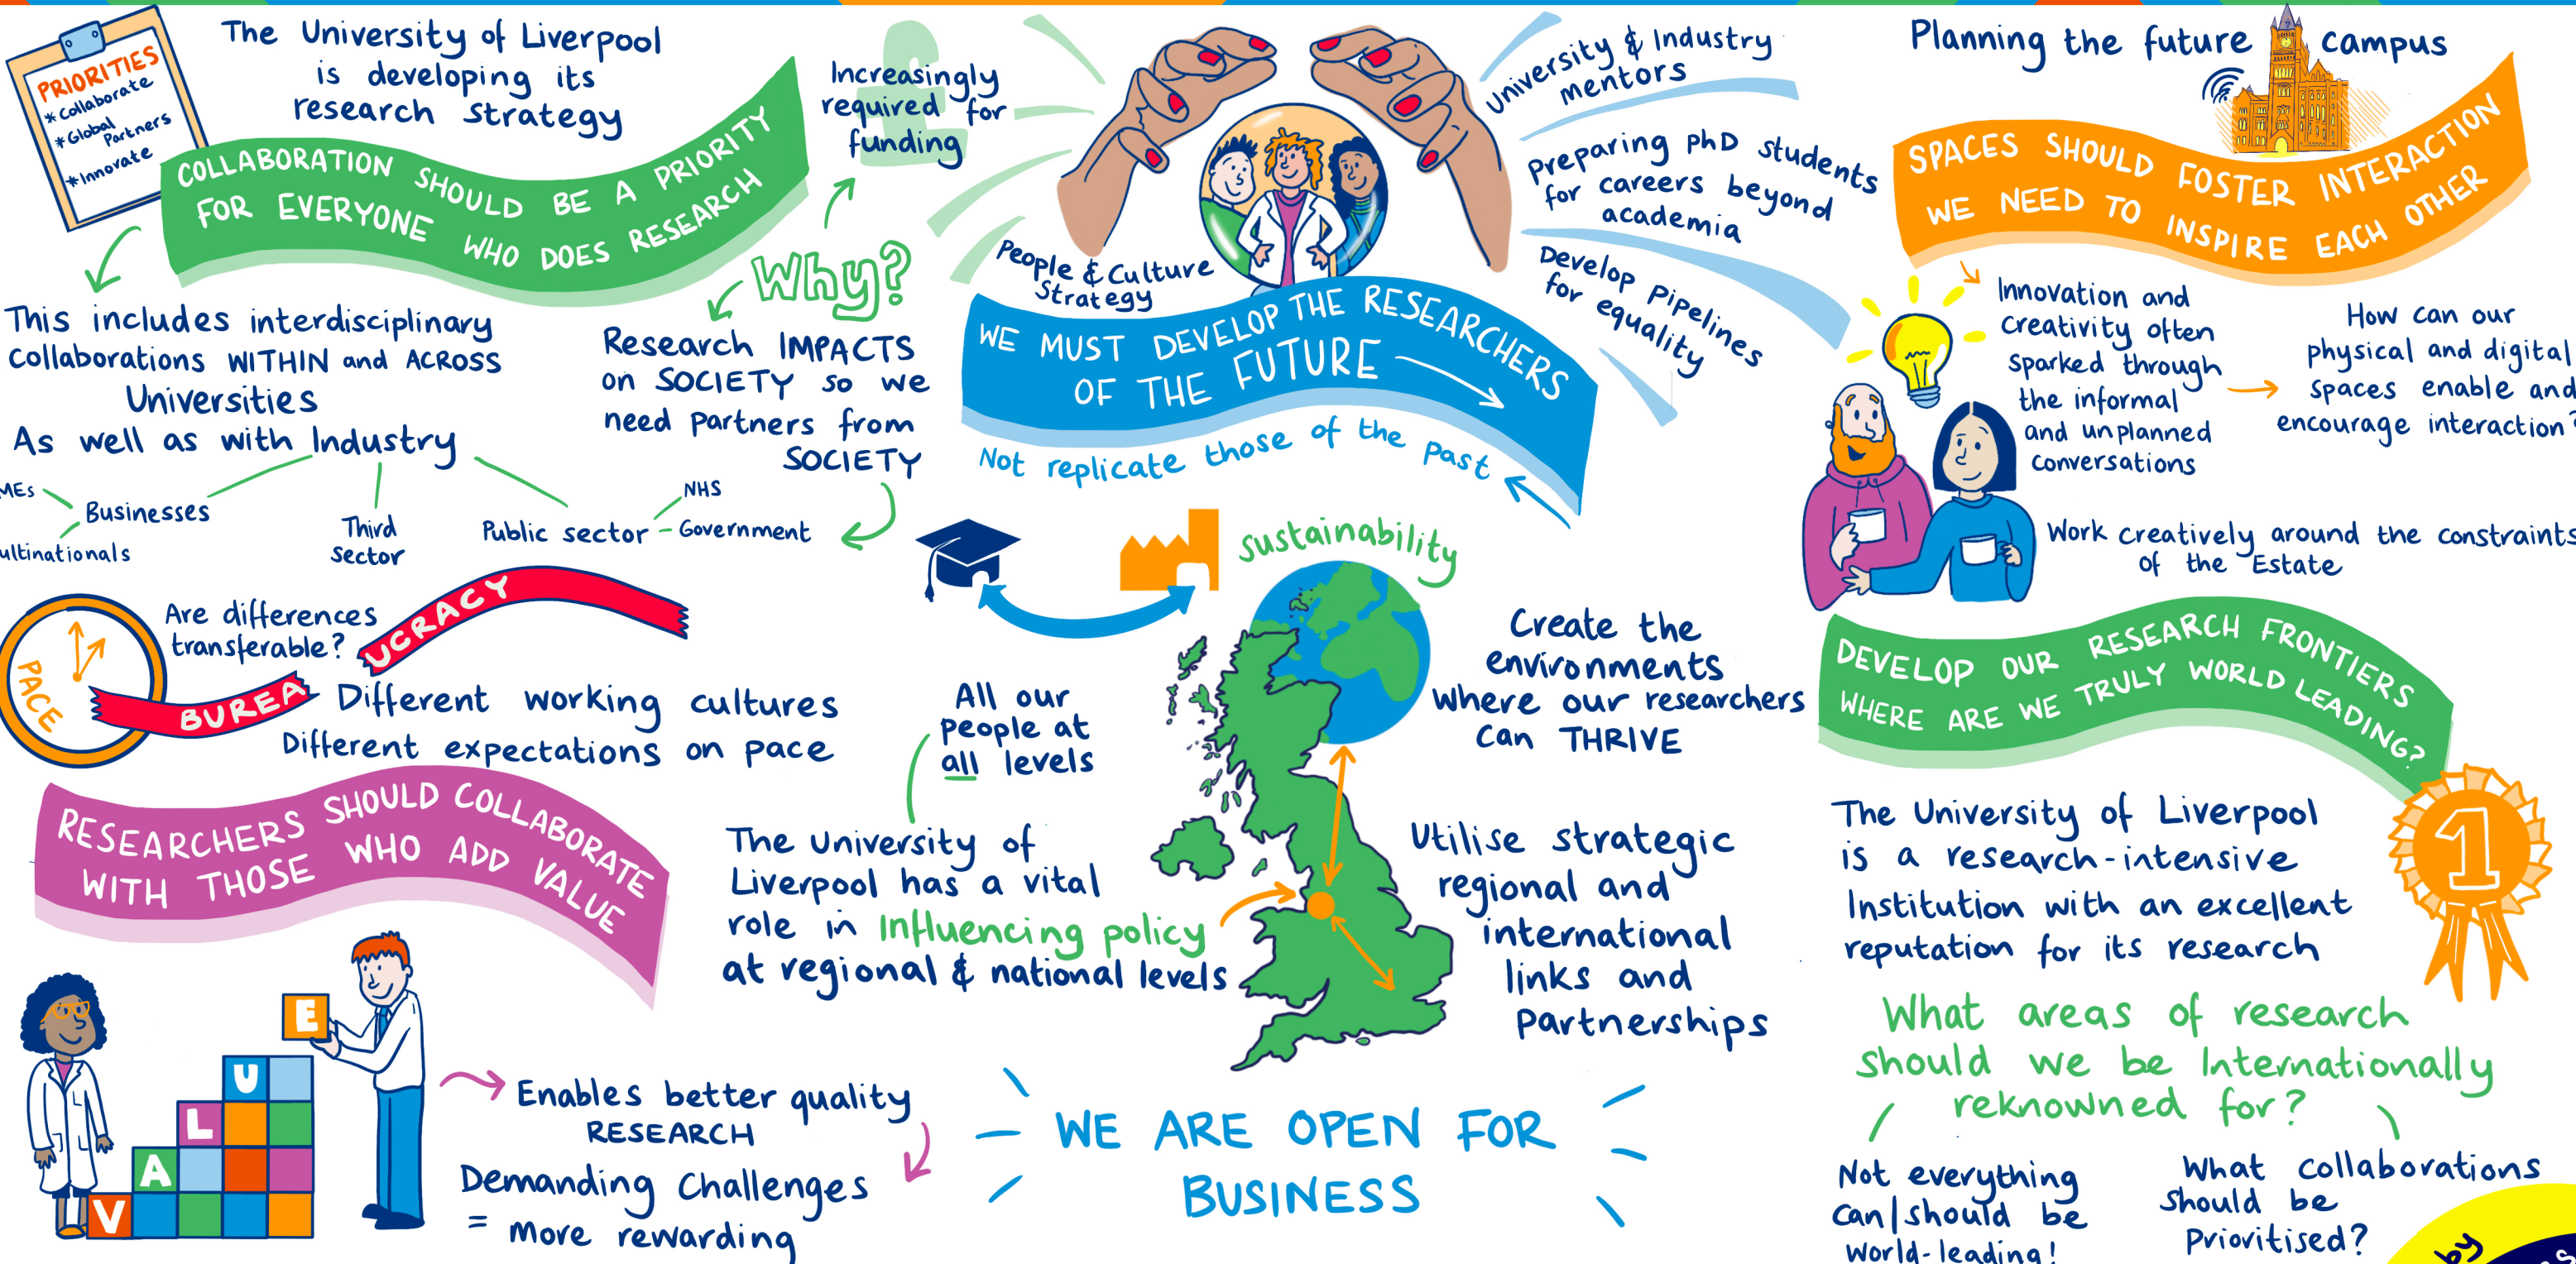 PRIORITIES
* Collaborate
* Global
Partners
* Innovate
The University of Liverpool
is developing its
research strategy
COLLABORATION SHOULD BE A PRIORITY
FOR EVERYONE WHO DOES RESEARCH
This includes interdisciplinary
Collaborations WITHIN and ACROSS
Universities
As well as with Industry
Businesses
Third
Sector
Public sector
NHS
Government
Why?
Increasingly
required for
funding
£
Research IMPACTS
on SOCIETY so we
need Partners from
SOCIETY
PACE
Are differences
transferable?
BUREA
UCRACY
Different working cultures
Different expectations on pace
RESEARCHERS SHOULD COLLABORATE
WITH THOSE WHO ADD VALUE
V
A
L
U
E
Enables better quality
RESEARCH
Demanding Challenges
= more rewarding
People & Culture
Strategy
University & Industry
mentors
Preparing PhD students
for careers beyond
academia
Develop Pipelines
for equality
WE MUST DEVELOP THE RESEARCHERS
OF THE FUTURE
Not replicate those of the past
sustainability
All our
people at
all levels
The University of
Liverpool has a vital
role in Influencing policy
at regional & national levels
Create the
environments
where our researchers
Can THRIVE
Utilise strategic
regional and
international
links and
Partnerships
WE ARE OPEN FOR
BUSINESS
Planning the future campus
SPACES SHOULD FOSTER INTERACTION
WE NEED TO INSPIRE EACH OTHER
Innovation and
Creativity often
Sparked through
the informal
and unplanned
conversations
How can our
physical and digital
spaces enable and
encourage interaction?
Work creatively around the constraints
of the Estate
DEVELOP OUR RESEARCH FRONTIERS
WHERE ARE WE TRULY WORLD LEADING?
1
The University of Liverpool
is a research-intensive
Institution with an excellent
reputation for its research
What areas of research
should we be Internationally
reknowned for?
Not everything
can/should be
world-leading!
What collaborations
should be
Prioritised?
by